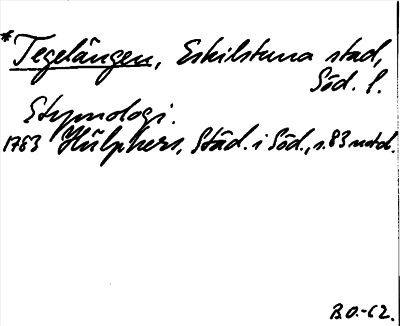 *Tegelängen, Eskilstuna stad,
Söd. l.
Etymologi.
1783 Hülphers, Städ. i Söd., s. 83 md.
B.O.-62.